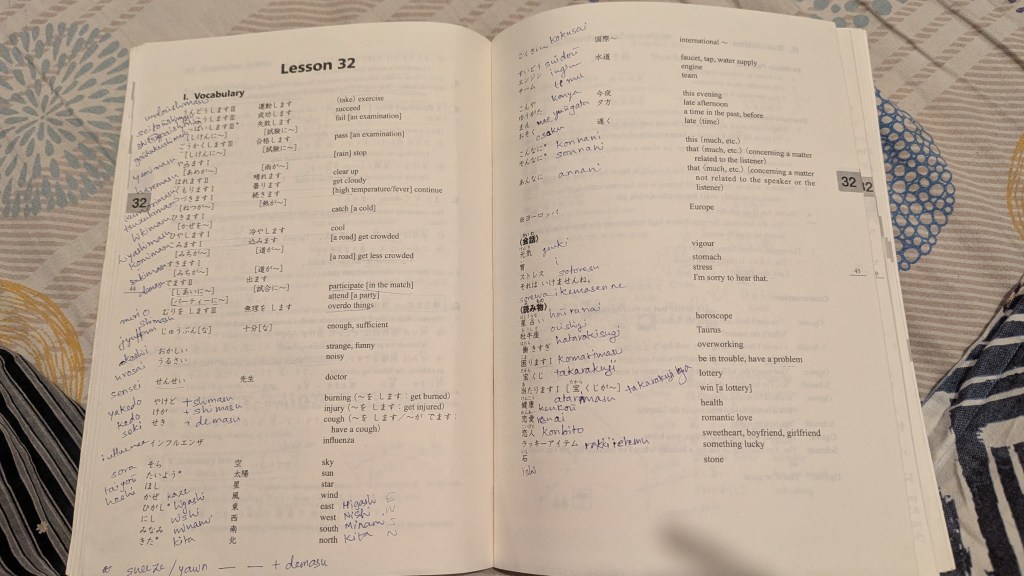 Lesson 32
I. Vocabulary
うんどうしますⅢ 運動します (take) exercise
せいこうしますⅢ 成功します succeed
しっぱいしますⅢ* 失敗します fail [an examination]
[しけんに〜] [試験に〜]
ごうかくしますⅢ 合格します pass [an examination]
[しけんに〜] [試験に〜]
やみますⅠ [rain] stop
[あめが〜] [雨が〜]
はれますⅡ 晴れます clear up
くもりますⅠ 曇ります get cloudy
つづきますⅠ 続きます [high temperature/fever] continue
[ねつが〜] [熱が〜]
ひきますⅠ catch [a cold]
[かぜを〜]
ひやしますⅠ 冷やします cool
こみますⅠ 込みます [a road] get crowded
[みちが〜] [道が〜]
すきますⅠ [a road] get less crowded
[みちが〜] [道が〜]
でますⅡ 出ます participate [in the match]
[しあいに〜] [試合に〜]
[パーティーに〜] attend [a party]
むりをしますⅢ 無理をします overdo things
じゅうぶん[な] 十分[な] enough, sufficient
okashii おかしい strange, funny
urosai うるさい noisy
sensei せんせい 先生 doctor
yakedo やけど + shimasu burning (〜を します : get burned)
kedo けが + shimasu injury (〜を します : get injured)
seki せき + demasu cough (〜を します/〜が でます : have a cough)
インフルエンザ influenza
sora そら 空 sky
taiyou たいよう* 太陽 sun
hoshi ほし 星 star
かぜ kaze 風 wind
ひがし* higashi 東 east Higashi E
にし nishi 西 west Nishi W
みなみ minami 南 south Minami S
きた* kita 北 north Kita N
* sneeze/yawn — — + demasu
32
44
こくさい〜 kokusai 国際〜 international 〜
すいどう suidou 水道 faucet, tap, water supply
エンジン engine
チーム team
こんや konya 今夜 this evening
ゆうがた yuugata 夕方 late afternoon
まえ mae a time in the past, before
おそく osoku 遅く late (time)
こんなに* konnani this (much, etc.)
そんなに* sonnani that (much, etc.) (concerning a matter related to the listener)
あんなに annani that (much, etc.) (concerning a matter not related to the speaker or the listener)
※ヨーロッパ Europe
〈会話〉
元気 genki vigour
胃 i stomach
ストレス sotoresu stress
それは いけませんね。 I'm sorry to hear that.
sorewa ikemasen ne
〈読み物〉
星占い hoshi uranai horoscope
牡牛座 oishiji Taurus
働きすぎ hatarakisugi overworking
困りますⅠ komarimasu be in trouble, have a problem
宝くじ takarakuji lottery
当たりますⅠ[宝くじが〜] atarimasu takarakujiga win [a lottery]
健康 kenkou health
恋愛 renai romantic love
恋人 konbito sweetheart, boyfriend, girlfriend
ラッキーアイテム rakkiitemu something lucky
石 stone
ishi
32
32
45